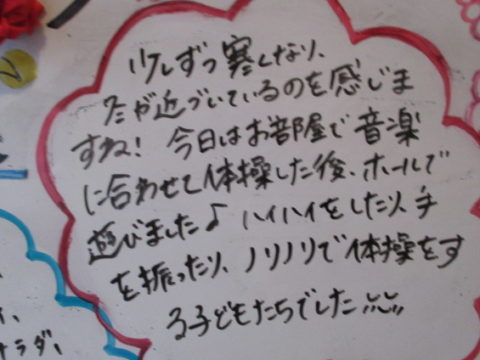 少しずつ寒くなり、
冬が近づいているのを感じま
すね！ 今日はお部屋で音楽
に合わせて体操した後、ホールで
遊びました♪ ハイハイをしたり、手
を振ったり、ノリノリで体操をす
る子どもたちでした
サラダ、